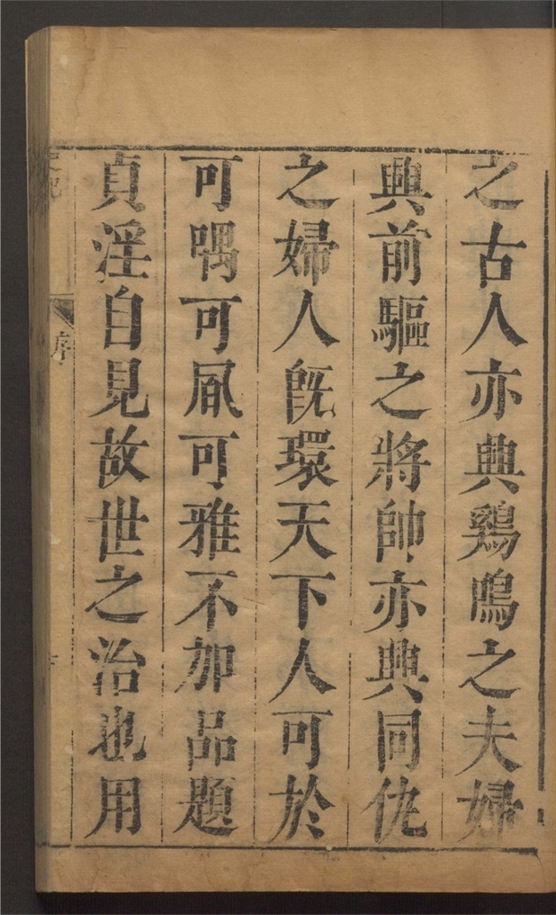 之古人亦典鷄鳴之夫婦
興前驅之將帥亦興同仇
之婦人既環天下人可於
可喁可凮可雅不加品題
貞淫自見故世之治也用
序